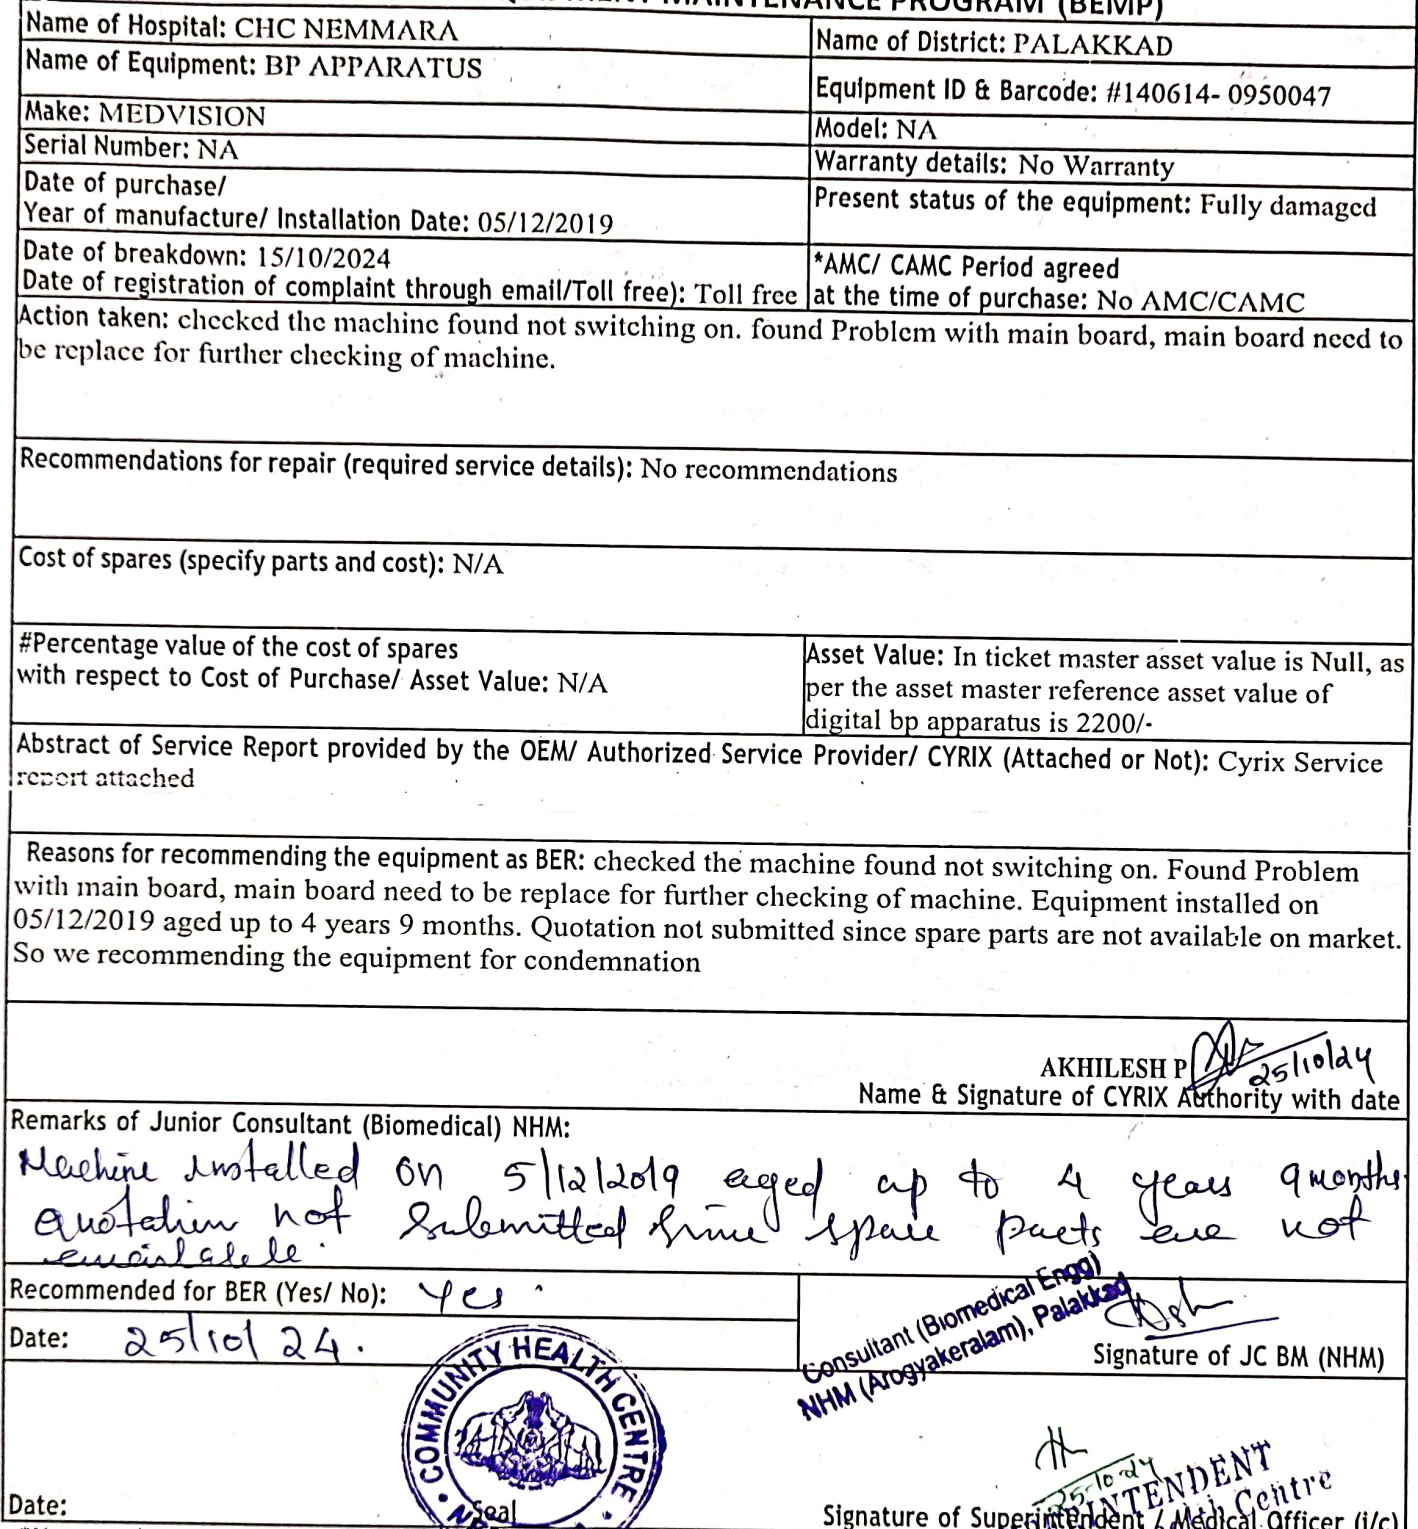 MAINTENANCE PROGRAM (BEMP)
Name of Hospital: CHC NEMMARA
Name of District: PALAKKAD
Name of Equipment: BP APPARATUS
Equipment ID & Barcode: #140614- 0950047
Make: MEDVISION
Model: NA
Serial Number: NA
Warranty details: No Warranty
Date of purchase/
Year of manufacture/ Installation Date: 05/12/2019
Present status of the equipment: Fully damaged
Date of breakdown: 15/10/2024
Date of registration of complaint through email/Toll free): Toll free
*AMC/ CAMC Period agreed
at the time of purchase: No AMC/CAMC
Action taken: checked the machine found not switching on. found Problem with main board, main board need to
be replace for further checking of machine.
Recommendations for repair (required service details): No recommendations
Cost of spares (specify parts and cost): N/A
#Percentage value of the cost of spares
with respect to Cost of Purchase/ Asset Value: N/A
Asset Value: In ticket master asset value is Null, as
per the asset master reference asset value of
digital bp apparatus is 2200/-
Abstract of Service Report provided by the OEM/ Authorized Service Provider/ CYRIX (Attached or Not): Cyrix Service
report attached
Reasons for recommending the equipment as BER: checked the machine found not switching on. Found Problem
with main board, main board need to be replace for further checking of machine. Equipment installed on
05/12/2019 aged up to 4 years 9 months. Quotation not submitted since spare parts are not available on market.
So we recommending the equipment for condemnation
AKHILESH P
25/10/24
Name & Signature of CYRIX Authority with date
Remarks of Junior Consultant (Biomedical) NHM:
Machine installed on 5/12/2019 aged up to 4 years 9 months
quotation not submitted since spare parts are not
available.
Recommended for BER (Yes/ No): Yes
Date: 25/10/24.
Consultant (Biomedical Engg)
NHM (Arogyakeralam), Palakkad
Signature of JC BM (NHM)
COMMUNITY HEALTH CENTRE
25-10-24
INTENDENT
Health Centre
Date:
Seal
Signature of Superintendent / Medical Officer (i/c)